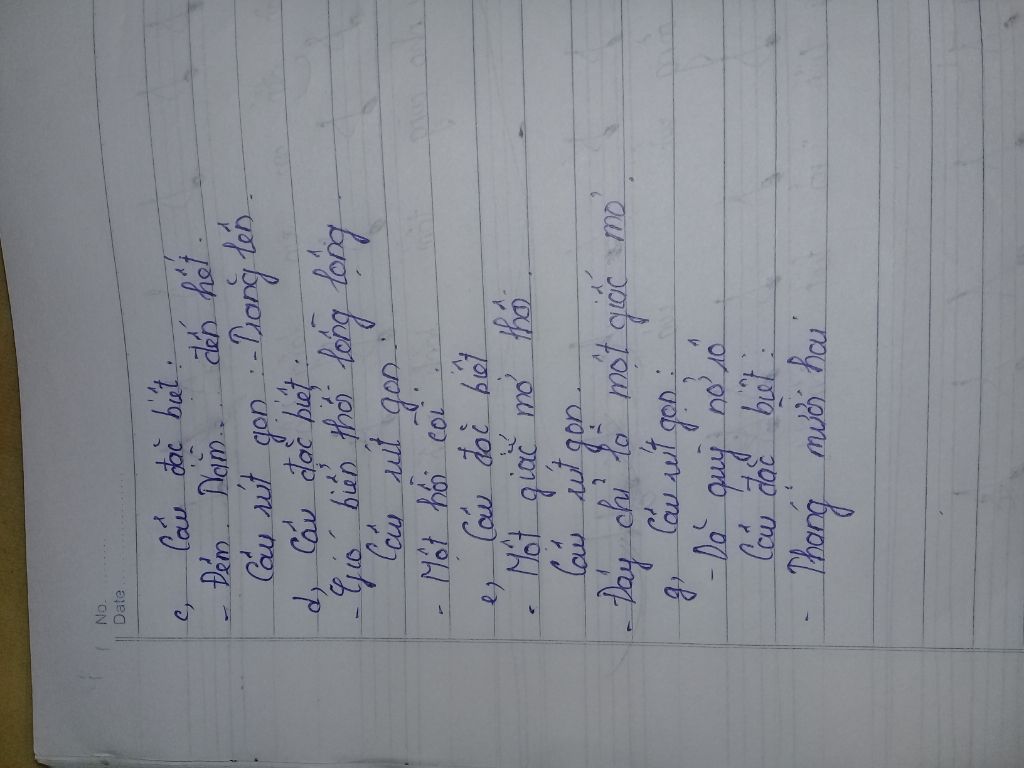 No.
Date
c, Câu đặc biệt:
- Đêm. Năm... đến hết.
Câu rút gọn: - Trăng lên.
d, Câu đặc biệt:
- Gió biển thổi lồng lộng.
Câu rút gọn:
- Một hồi còi.
e, Câu đặc biệt
- Một giấc mơ thôi.
Câu rút gọn.
- Đây chỉ là một giấc mơ.
g, Câu rút gọn:
- Dã quỳ nở rộ
Câu đặc biệt:
- Tháng mười hai.